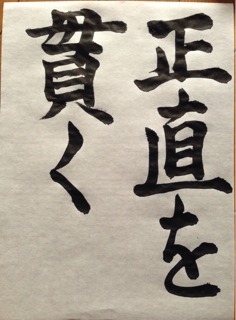 正直を
貫く